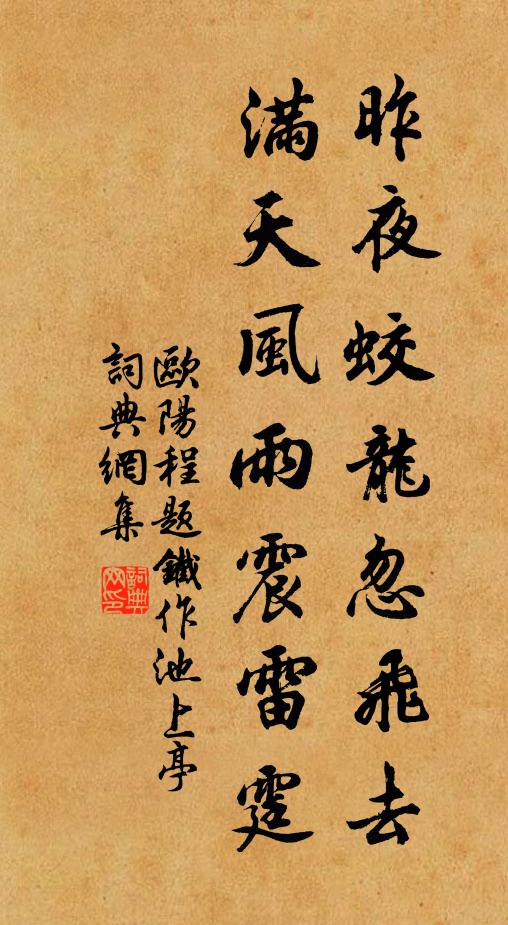 昨夜蛟龍忽飛去
滿天風雨震雷霆
歐陽程題鐵作池上亭
詞典網集
詞典網印